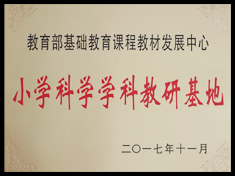 教育部基础教育课程教材发展中心
小学科学学科教研基地
二〇一七年十一月